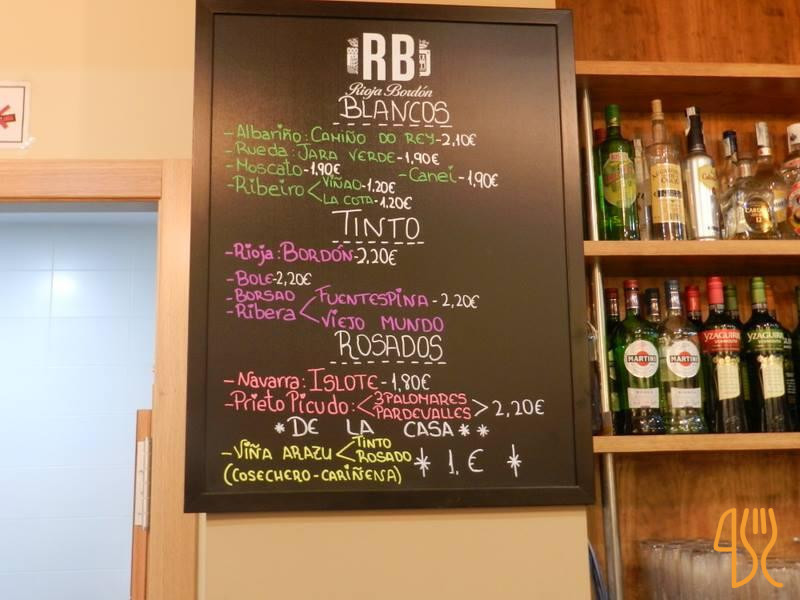 RB
Rioja Bordón
BLANCOS
-Albariño: CAMIÑO DO REY-2,10€
-Rueda: JARA VERDE-1,90€
-Moscato-1,90€ -Canei-1,90€
-Ribeiro < VIÑAO-1,20€
LA COTA-1,20€
TINTO
-Rioja: BORDÓN-2,20€
-BOLE-2,20€
-BORSAO
-Ribera < FUENTESPINA-2,20€
VIEJO MUNDO
ROSADOS
-Navarra: ISLOTE-1,80€
-Prieto Picudo: < 3 PALOMARES
PARDEVALLES > 2,20€
*DE LA CASA**
-VIÑA ARAZU < TINTO
ROSADO * 1.€ *
(COSECHERO-CARIÑENA)
MARTINI
MARTINI
YZAGUIRRE
YZAGUIRRE